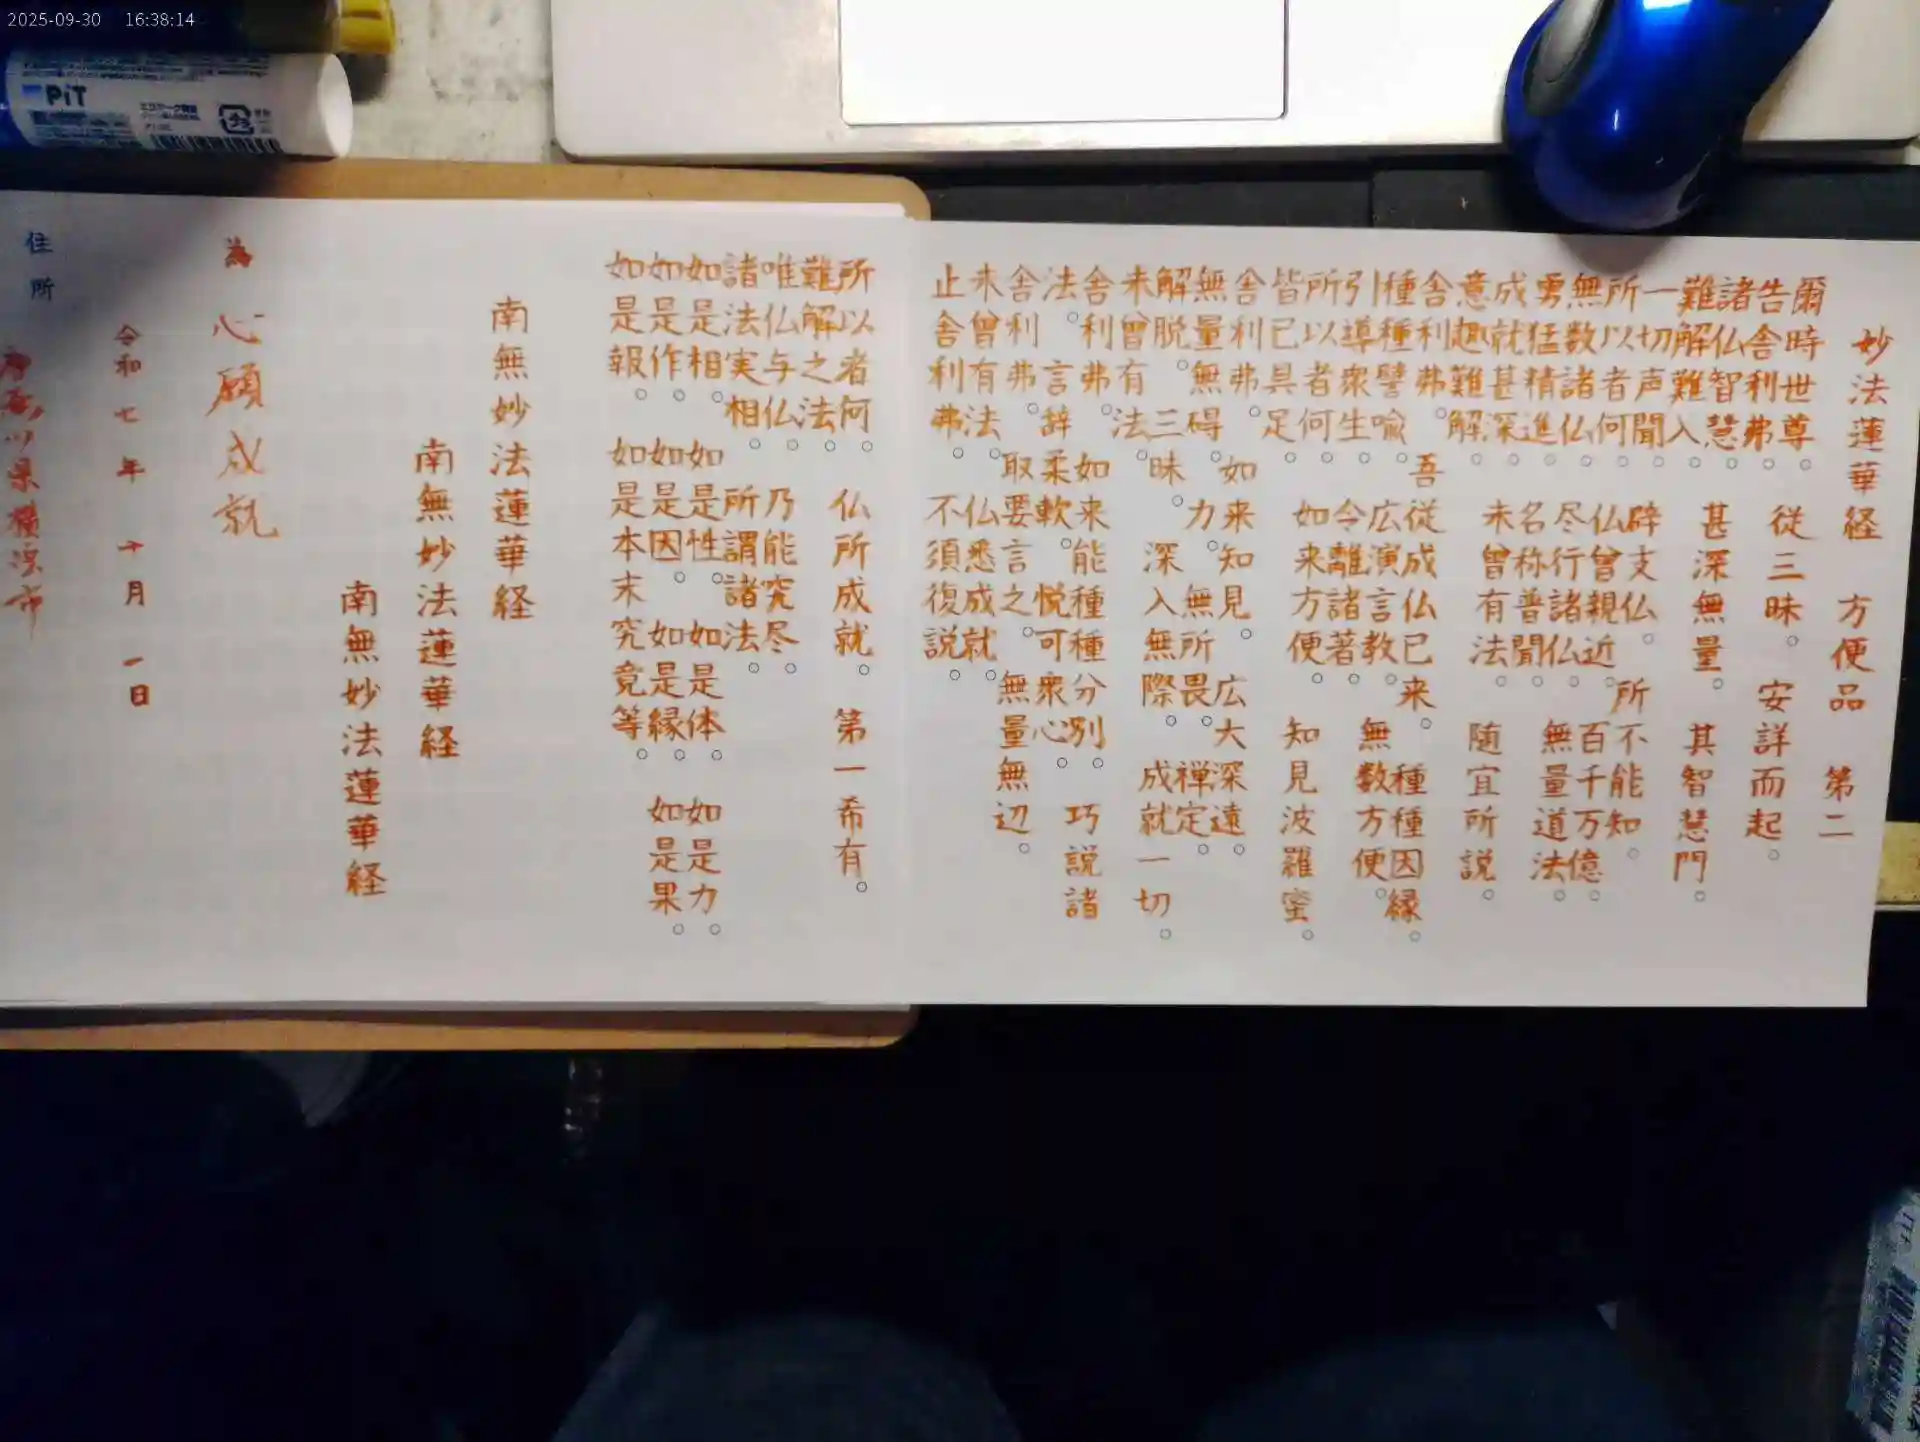 妙法蓮華経 方便品 第二
爾時世尊。従三昧。安詳而起。
告舎利弗。
諸仏智慧。甚深無量。其智慧門。
難解難入。
一切声聞。辟支仏。所不能知。
所以者何。仏曾親近。百千万億。
無数諸仏。尽行諸仏。無量道法。
勇猛精進。名称普聞。
成就甚深。未曾有法。随宜所説。
意趣難解。
舎利弗。吾従成仏已来。種種因縁。
種種譬喩。広演言教。無数方便。
引導衆生。令離諸著。
所以者何。如来方便。知見波羅蜜。
皆已具足。
舎利弗。如来知見。広大深遠。
無量無碍。力無所畏。禅定。
解脱。三昧。深入無際。成就一切。
未曾有法。
舎利弗。如来能種種分別。巧説諸
法。言辞柔軟。悦可衆心。
舎利弗。取要言之。無量無辺。
未曾有法。仏悉成就。
止舎利弗。不須復説。
所以者何。仏所成就。第一希有。
難解之法。
唯仏与仏。乃能究尽。
諸法実相。所謂諸法。
如是相。如是性。如是体。如是力。
如是作。如是因。如是縁。如是果。
如是報。如是本末究竟等。
南無妙法蓮華経
南無妙法蓮華経
南無妙法蓮華経
為 心願成就
令和七年 十月 一日
住所 神奈川県横浜市
PiT
2025-09-30 16:38:14